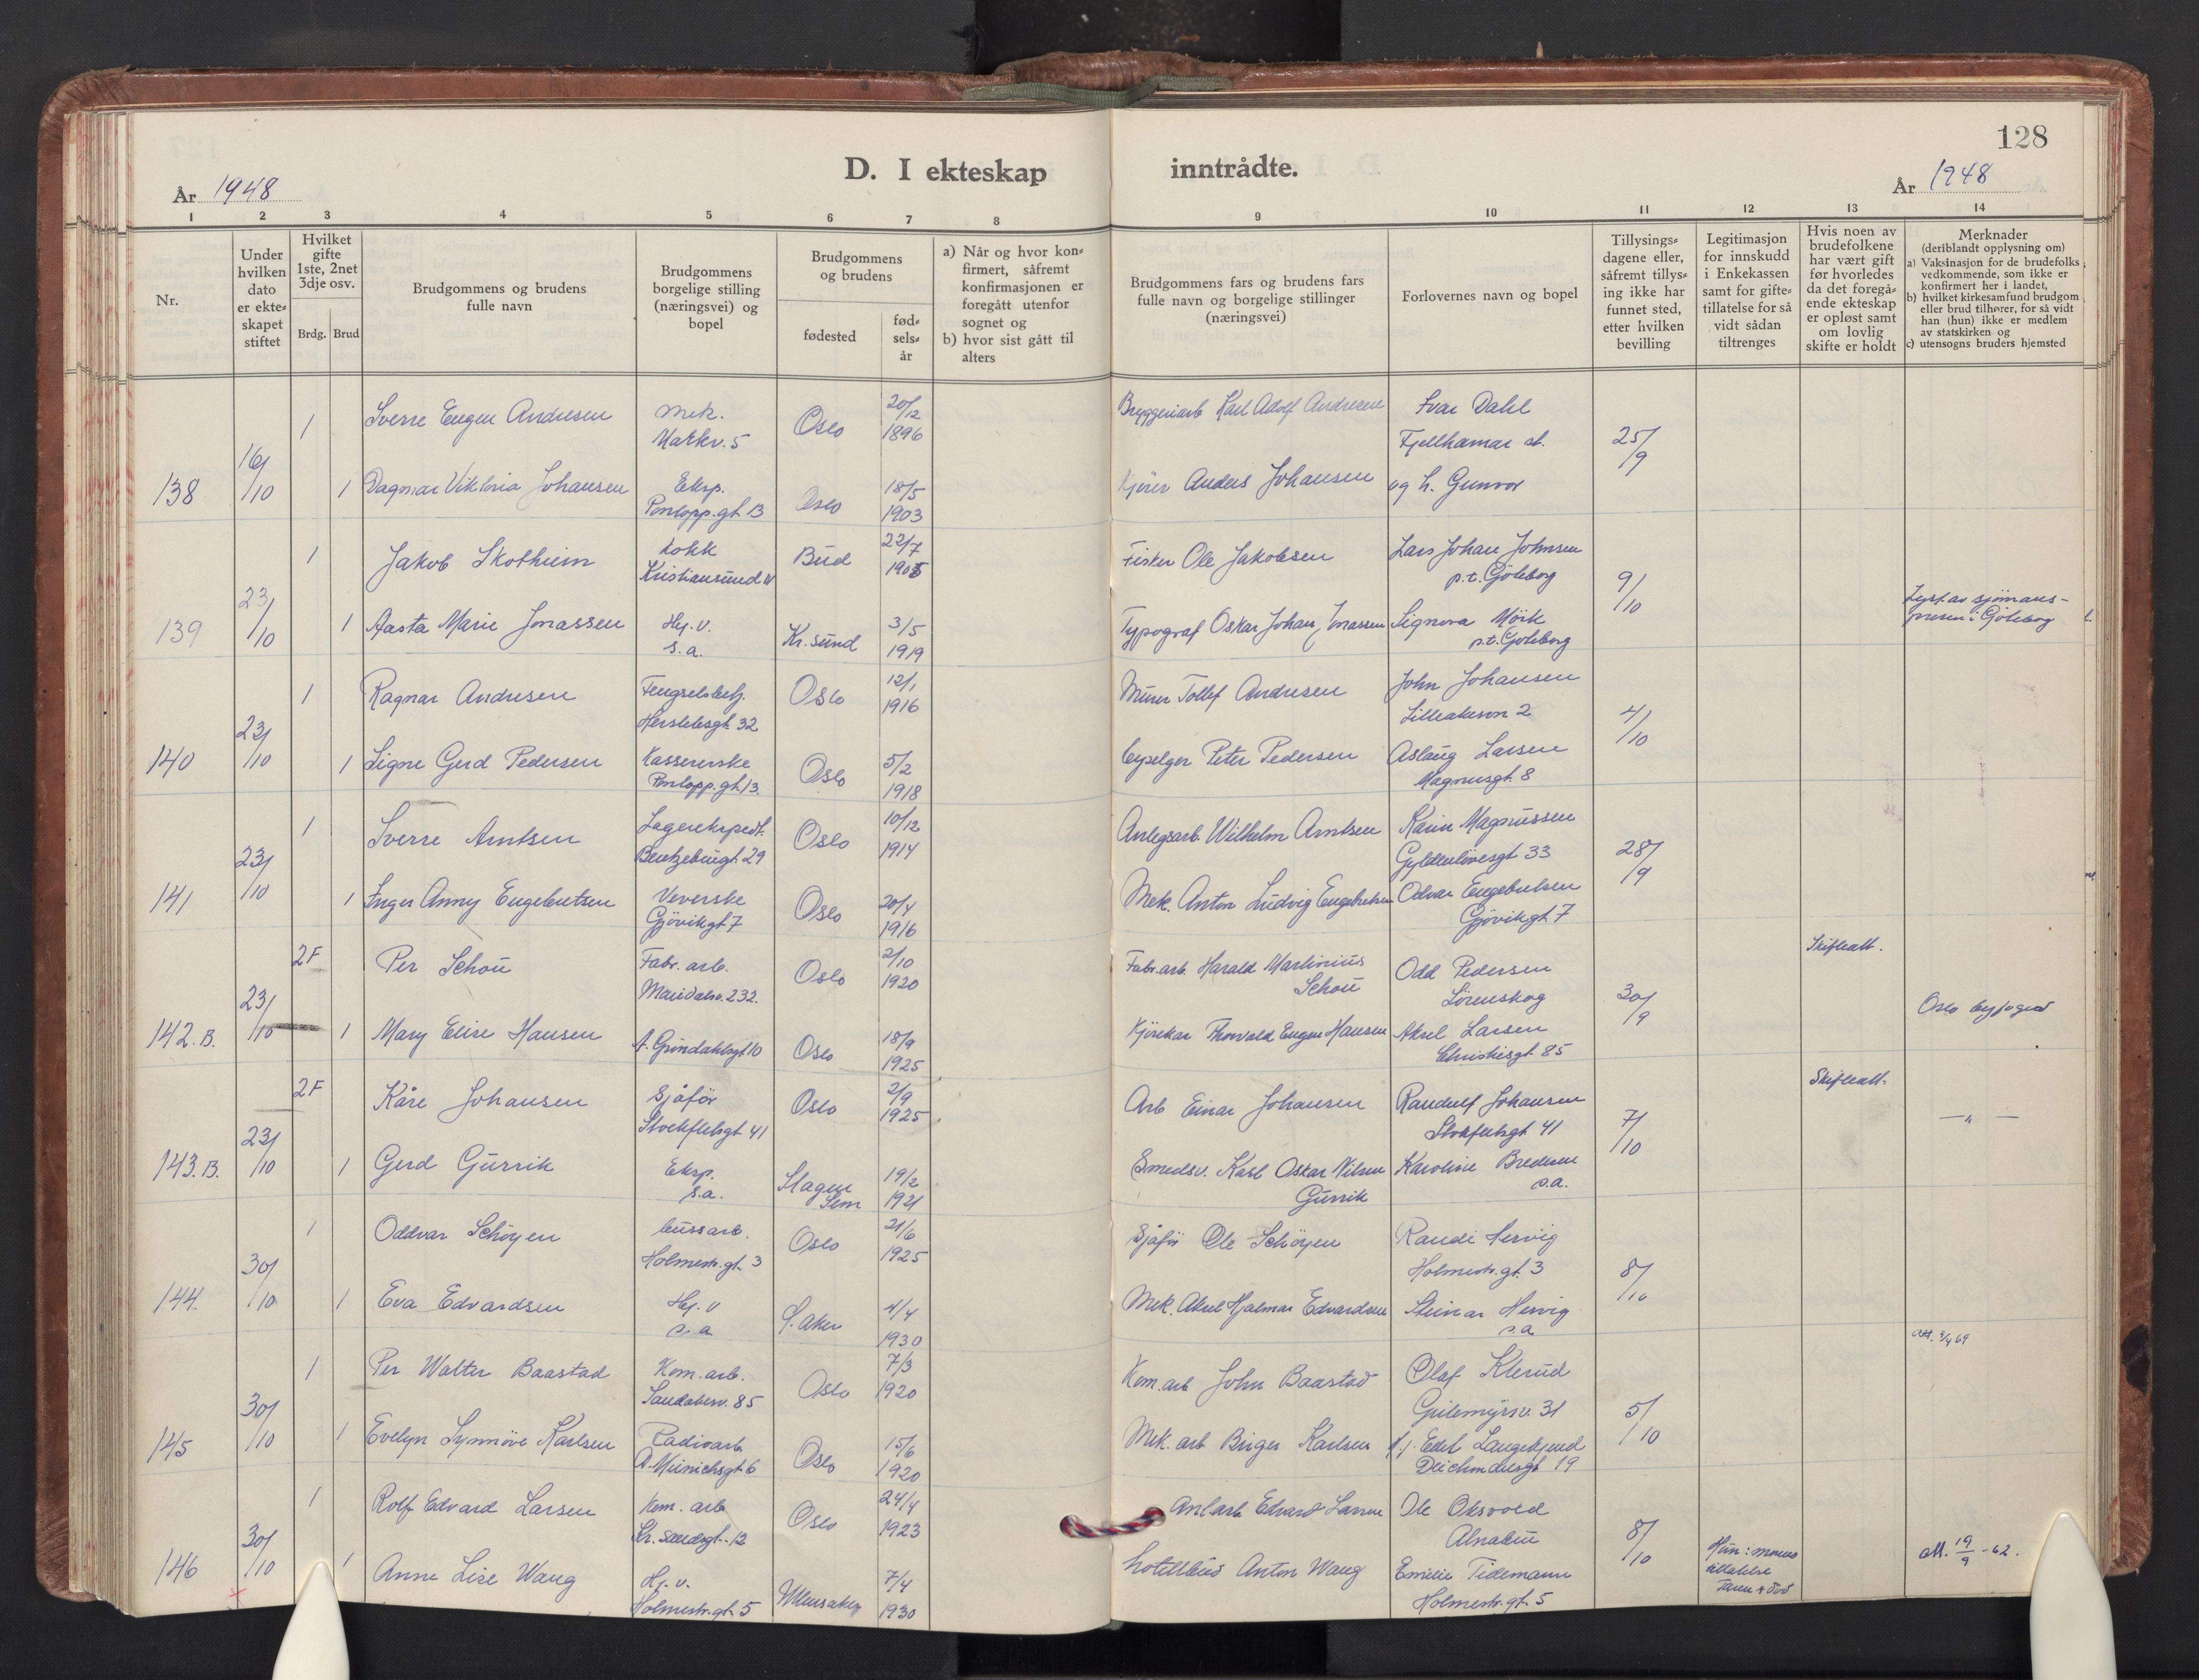 128
D. I ekteskap inntrådte.
År 1948
År 1948
1 2 3 4 5 6 7 8 9 10 11 12 13 14
Nr.
Under hvilken dato er ekte= skapet stiftet
Hvilket gifte 1ste, 2net 3dje osv.
Brdg. Brud
Brudgommens og brudens fulle navn
Brudgommens borgelige stilling (næringsvei) og bopel
Brudgommens og brudens
fødested
fød= sels= år
a) Når og hvor kon= firmert, såfremt konfirmasjonen er foregått utenfor sognet og
b) hvor sist gått til alters
Brudgommens fars og brudens fars fulle navn og borgelige stillinger (næringsvei)
Forlovernes navn og bopel
Tillysings= dagene eller, såfremt tillys= ing ikke har funnet sted, etter hvilken bevilling
Legitimasjon for innskudd i Enkekassen samt for gifte= tillatelse for så vidt sådan tiltrenges
Hvis noen av brudefolkene har vært gift før hvorledes da det foregå= ende ekteskap er opløst samt om lovlig skifte er holdt
Merknader (deriblandt opplysning om)
a) Vaksinasjon for de brudefolks vedkommende, som ikke er konfirmert her i landet,
b) hvilket kirkesamfund brudgom eller brud tilhører, for så vidt han (hun) ikke er medlem av statskirken og
c) utensogns bruders hjemsted
1 Sverre Eugen Andresen Mek. Oslo 20/12 Bryggeriarb Karl Adolf Andresen Ivar Dahl
Markv. 5 1896 Fjellhamar st. 25/9
138 16/10 1 Dagmar Viktoria Johansen Eksp. Oslo 18/5 Kjører Anders Johansen og h. Gunvor
Pontopp.gt. 13 1903
1 Jakob Skotheim Kokk Bud 22/7 Fisker Ole Jakobsen Lars Johan Johnsen
Kristiansund N 1905 p.t. Göteborg 9/10
139 23/10 1 Aasta Marie Jonassen Hj. v. Kr.sund 3/5 Typograf Oskar Johan Jonassen Signora Mörk Lyst av sjömans-
s.a. 1919 p.t. Göteborg i Göteborg
1 Ragnar Andresen Fengselsbetj. Oslo 12/1 Murer Tollef Andresen John Johansen
Herslebsgt. 32 1916 Lilleakern 2 4/10
140 23/10 1 Signe Gerd Pedersen Kassererske Oslo 5/2 Peter Pedersen Aslaug Larsen
Pontopp.gt. 13. 1918 Magnusgt. 8
1 Sverre Arntsen Lagerekspedt. Oslo 10/12 Anlegsarb. Wilhelm Arntsen Karin Magnussen
Bentzebrugt 29 1914 Gyldenlövesgt 33 28/9
141 23/10 1 Inger Anny Engebretsen Veverske Oslo 20/4 Mek. Anton Ludvig Engebretsen Odvar Engebretsen
Gjövikgt 7 1916 Gjövikgt 7
2F Per Schou Fabr. arb. Oslo 2/10 Fabr.arb. Harald Martinius Odd Pedersen Skifteatt.
Maridalsv. 232. 1920 Schou Lörenskog 30/9
142.B. 23/10 1 Mary Elise Hansen A. Grindahlsgt 10 Oslo 18/9 Kjörekar Thorvald Eugen Hansen Aksel Larsen Oslo byfogd
1925 Christiesgt. 85
2F Kåre Johansen Sjåför Oslo 2/9 Arb Einar Johansen Randulf Johansen Skifteatt.
Stockflethsgt 41 1925 Stokfletsgt 41 7/10 — „ —
143.B. 23/10 1 Gerd Gurrik Eksp. Slagen 19/2 Smedsv. Karl Oskar Nilsen Karoline Bredesen
s.a. Sem 1921 Gurrik s.a.
1 Oddvar Schöyen bussarb. Oslo 21/6 Sjåför Ole Schöyen Randi Hervig
Holmestr.gt. 3 1925 Holmestr.gt. 3 8/10
144. 30/10 1 Eva Edvardsen Hj. v 4/4 Mek. Aksel Hjalmar Edvardsen Steinar Hervig
s. a 1930 s.a. att. 3/4 69
1 Per Walter Baastad Kom. arb. Oslo 7/3 Kom.arb John Baastad Olaf Klerud
85 1920 31 5/10
145 30/10 1 Evelyn Synnöve Karlsen Radioarb. Oslo 15/6 Mek. arb Birger Karlsen Edel Langekjend
A. Munichsgt. 6 1920 Deichmansgt 19
1 Rolf Edvard Larsen Kom. arb Oslo 24/4 Anl.arb Edvard Larsen Ole Oksvold
Kr.sandsgt. 12 1923 Alnabru 8/10
146 30/10 1 Anne Lise Wang Hj. v. Ullensaker 7/4 Anton Wang Emilie Tidemann Hun: att. 19/9 -62.
Holmestr.gt. 5 1930 Holmestr.gt. 5